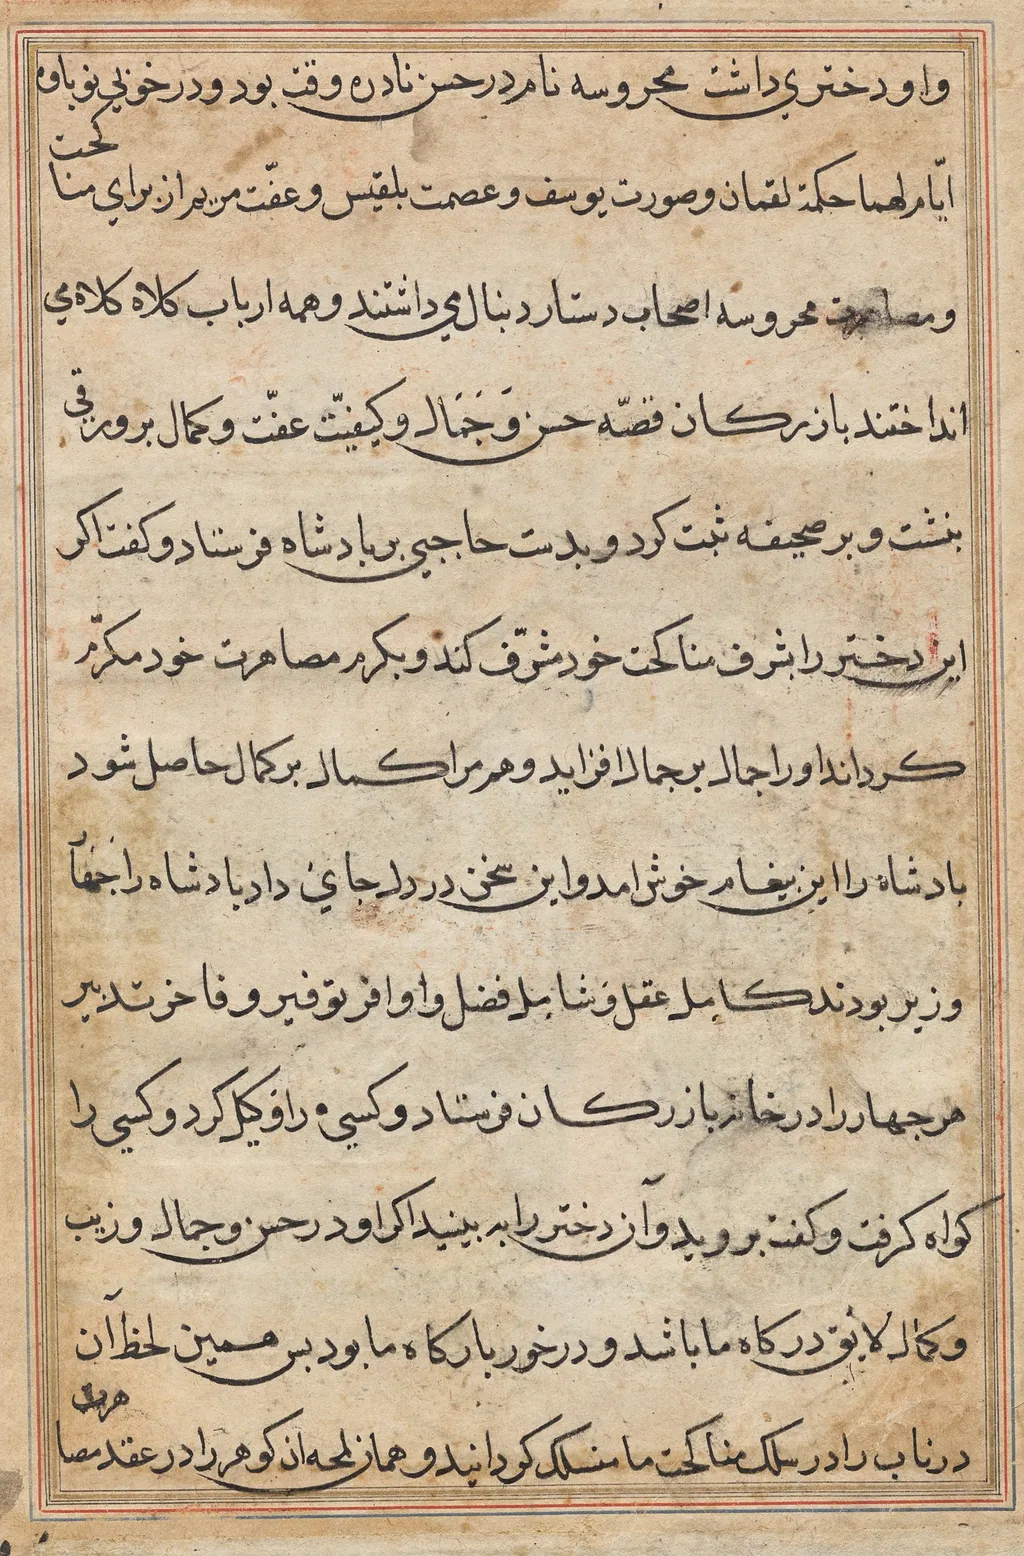 واو دختري داشت محروسه نام در حسن نادره وقت بود و در خوبي نوباوه
ايّام لهما حكمة لقمان وصورت يوسف وعصمت بلقيس وعفّت مريم از براي مناكحت
ومصاهرت محروسه اصحاب دستار دنبال مي داشتند وهمه ارباب كلاه كلاه مي
انداختند بازركان قصّه حسن وَجَمَال وكيفيّت عفّت وكمال برورقي
بنشت و بر صحيفه ثبت كرد و بدست حاجبي بر بادشاه فرستاد وكفت اكر
اين دختر را بشرف مناكحت خود مشرّف كند وبكرم مصاهرت خود مكرّم
كرداند اورا جمال بر جمال افزايد وهم مرا كمال بر كمال حاصل شود
بادشاه را اين بيغام خوش امد واين سخن در دل جاي داد بادشاه را جهار
وزير بودند كامل عقل و شامل فضل و اوافر توفير و فاخر تدبير
هر جهار را در خانه بازركان فرستاد وكسي را وكيل كرد وكسي را
كواه كرفت وكفت برويد وآن دختر را به بينيد اكر او در حسن وجمال وزيب
وكمال لايق دركاه ما باشد و در خور باركاه ما بود بس همين لحظه آن
درناب را در سلك مناكحت ما منسلك كردانيد و همان لمحه ان كوهر را در عقد مصاهرت